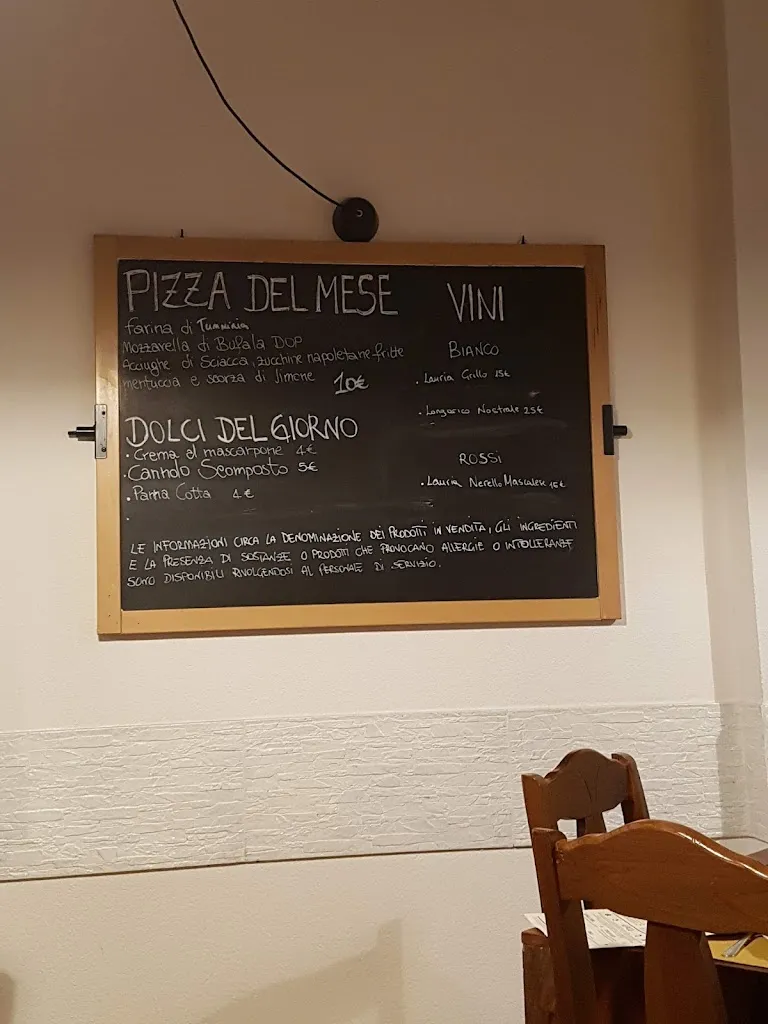 PIZZA DEL MESE
farina di Tumminia
Mozzarella di Bufala DOP
Acciughe di Sciacca, zucchine napoletane fritte
mentuccia e scorza di limone 10€
DOLCI DEL GIORNO
• Crema al mascarpone 4€
• Cannolo Scomposto 5€
• Panna Cotta 4€
•
VINI
BIANCO
• Lauria Grillo 15€
• Longarico Nostrale 25€
ROSSI
• Lauria Nerello Mascalese 15€
LE INFORMAZIONI CIRCA LA DENOMINAZIONE DEI PRODOTTI IN VENDITA, GLI INGREDIENTI
E LA PRESENZA DI SOSTANZE O PRODOTTI CHE PROVOCANO ALLERGIE O INTOLLERANZE
SONO DISPONIBILI RIVOLGENDOSI AL PERSONALE DI SERVIZIO.